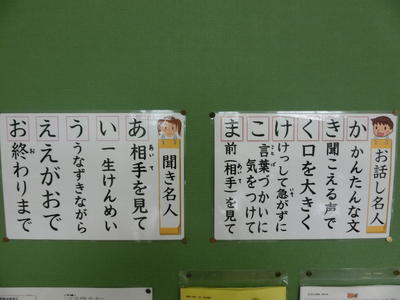 お話し名人
か かんたんな文
き 聞こえる声で
く 口を大きく
け けっして急がずに
こ 言葉づかいに
気をつけて
ま 前(相手)を見て
聞き名人
あ 相手を見て
い 一生けんめい
う うなずきながら
え えがおで
お 終わりまで